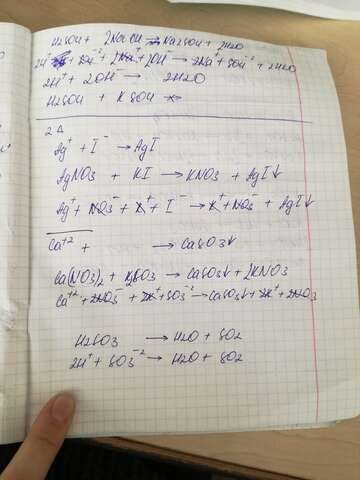 H2SO4 + 2NaOH → Na2SO4 + 2H2O
2H⁺ + SO4⁻² + 2Na⁺ + 2OH⁻ → 2Na⁺ + SO4⁻² + 2H2O
2H⁺ + 2OH⁻ → 2H2O
H2SO4 + KSO4
2 Δ
Ag⁺ + I⁻ → AgI
AgNO3 + KI → KNO3 + AgI↓
Ag⁺ + NO3⁻ + K⁺ + I⁻ → K⁺ + NO3⁻ + AgI↓
Ca⁺² + → CaSO3↓
Ca(NO3)2 + K2SO3 → CaSO3↓ + 2KNO3
Ca⁺² + 2NO3⁻ + 2K⁺ + SO3⁻² → CaSO3↓ + 2K⁺ + 2NO3
H2SO3 → H2O + SO2
2H⁺ + SO3⁻² → H2O + SO2